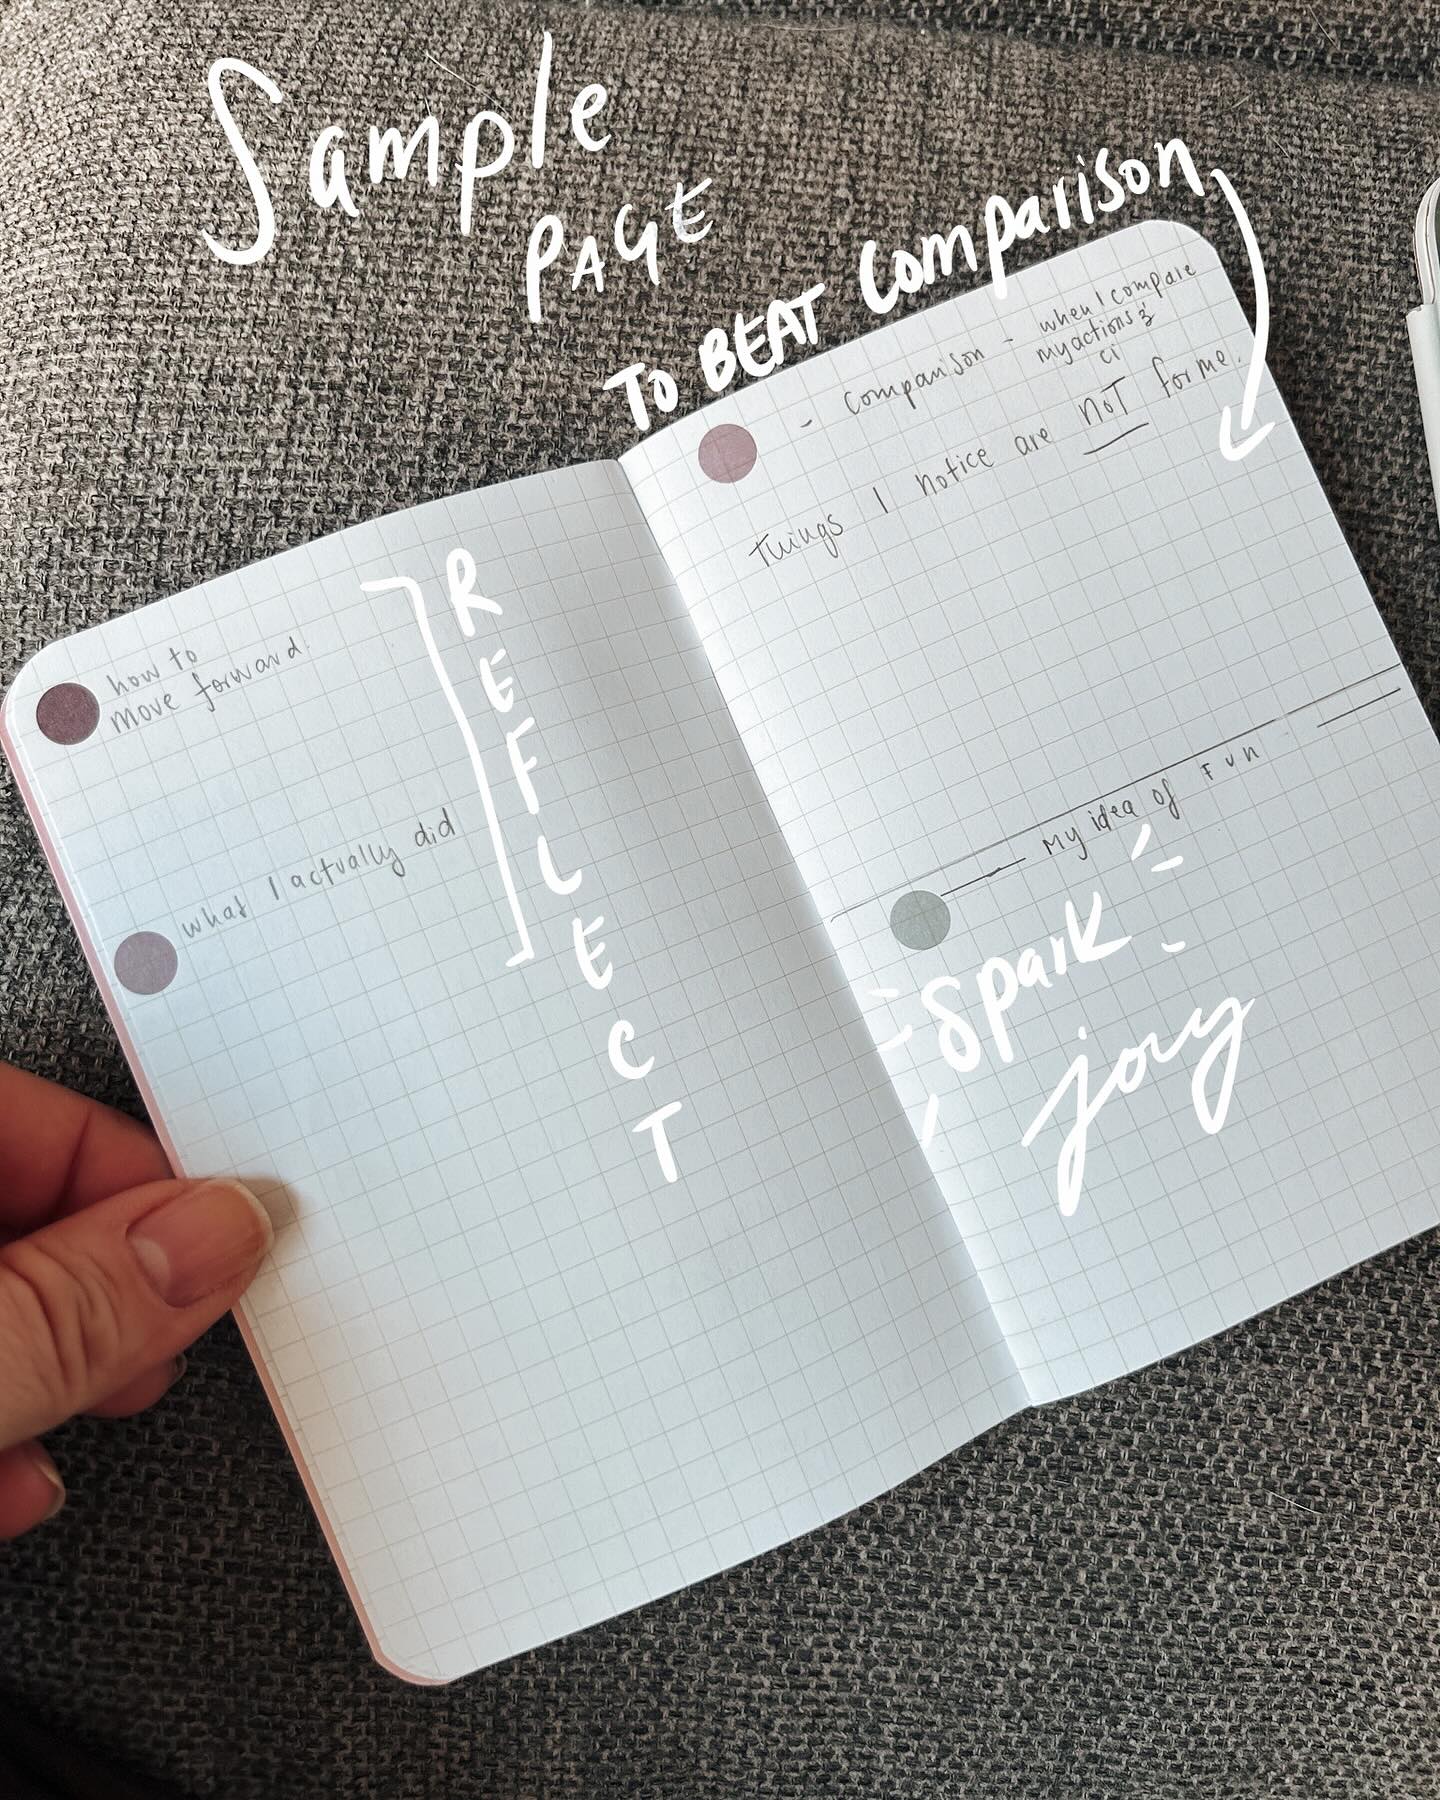 Sample
PAGE
TO BEAT Comparison
how to
move forward.
what I actually did
REFLECT
- comparison - when I compare
my actions &
ci
things I notice are NOT for me.
My idea of FUN
Spark
joy